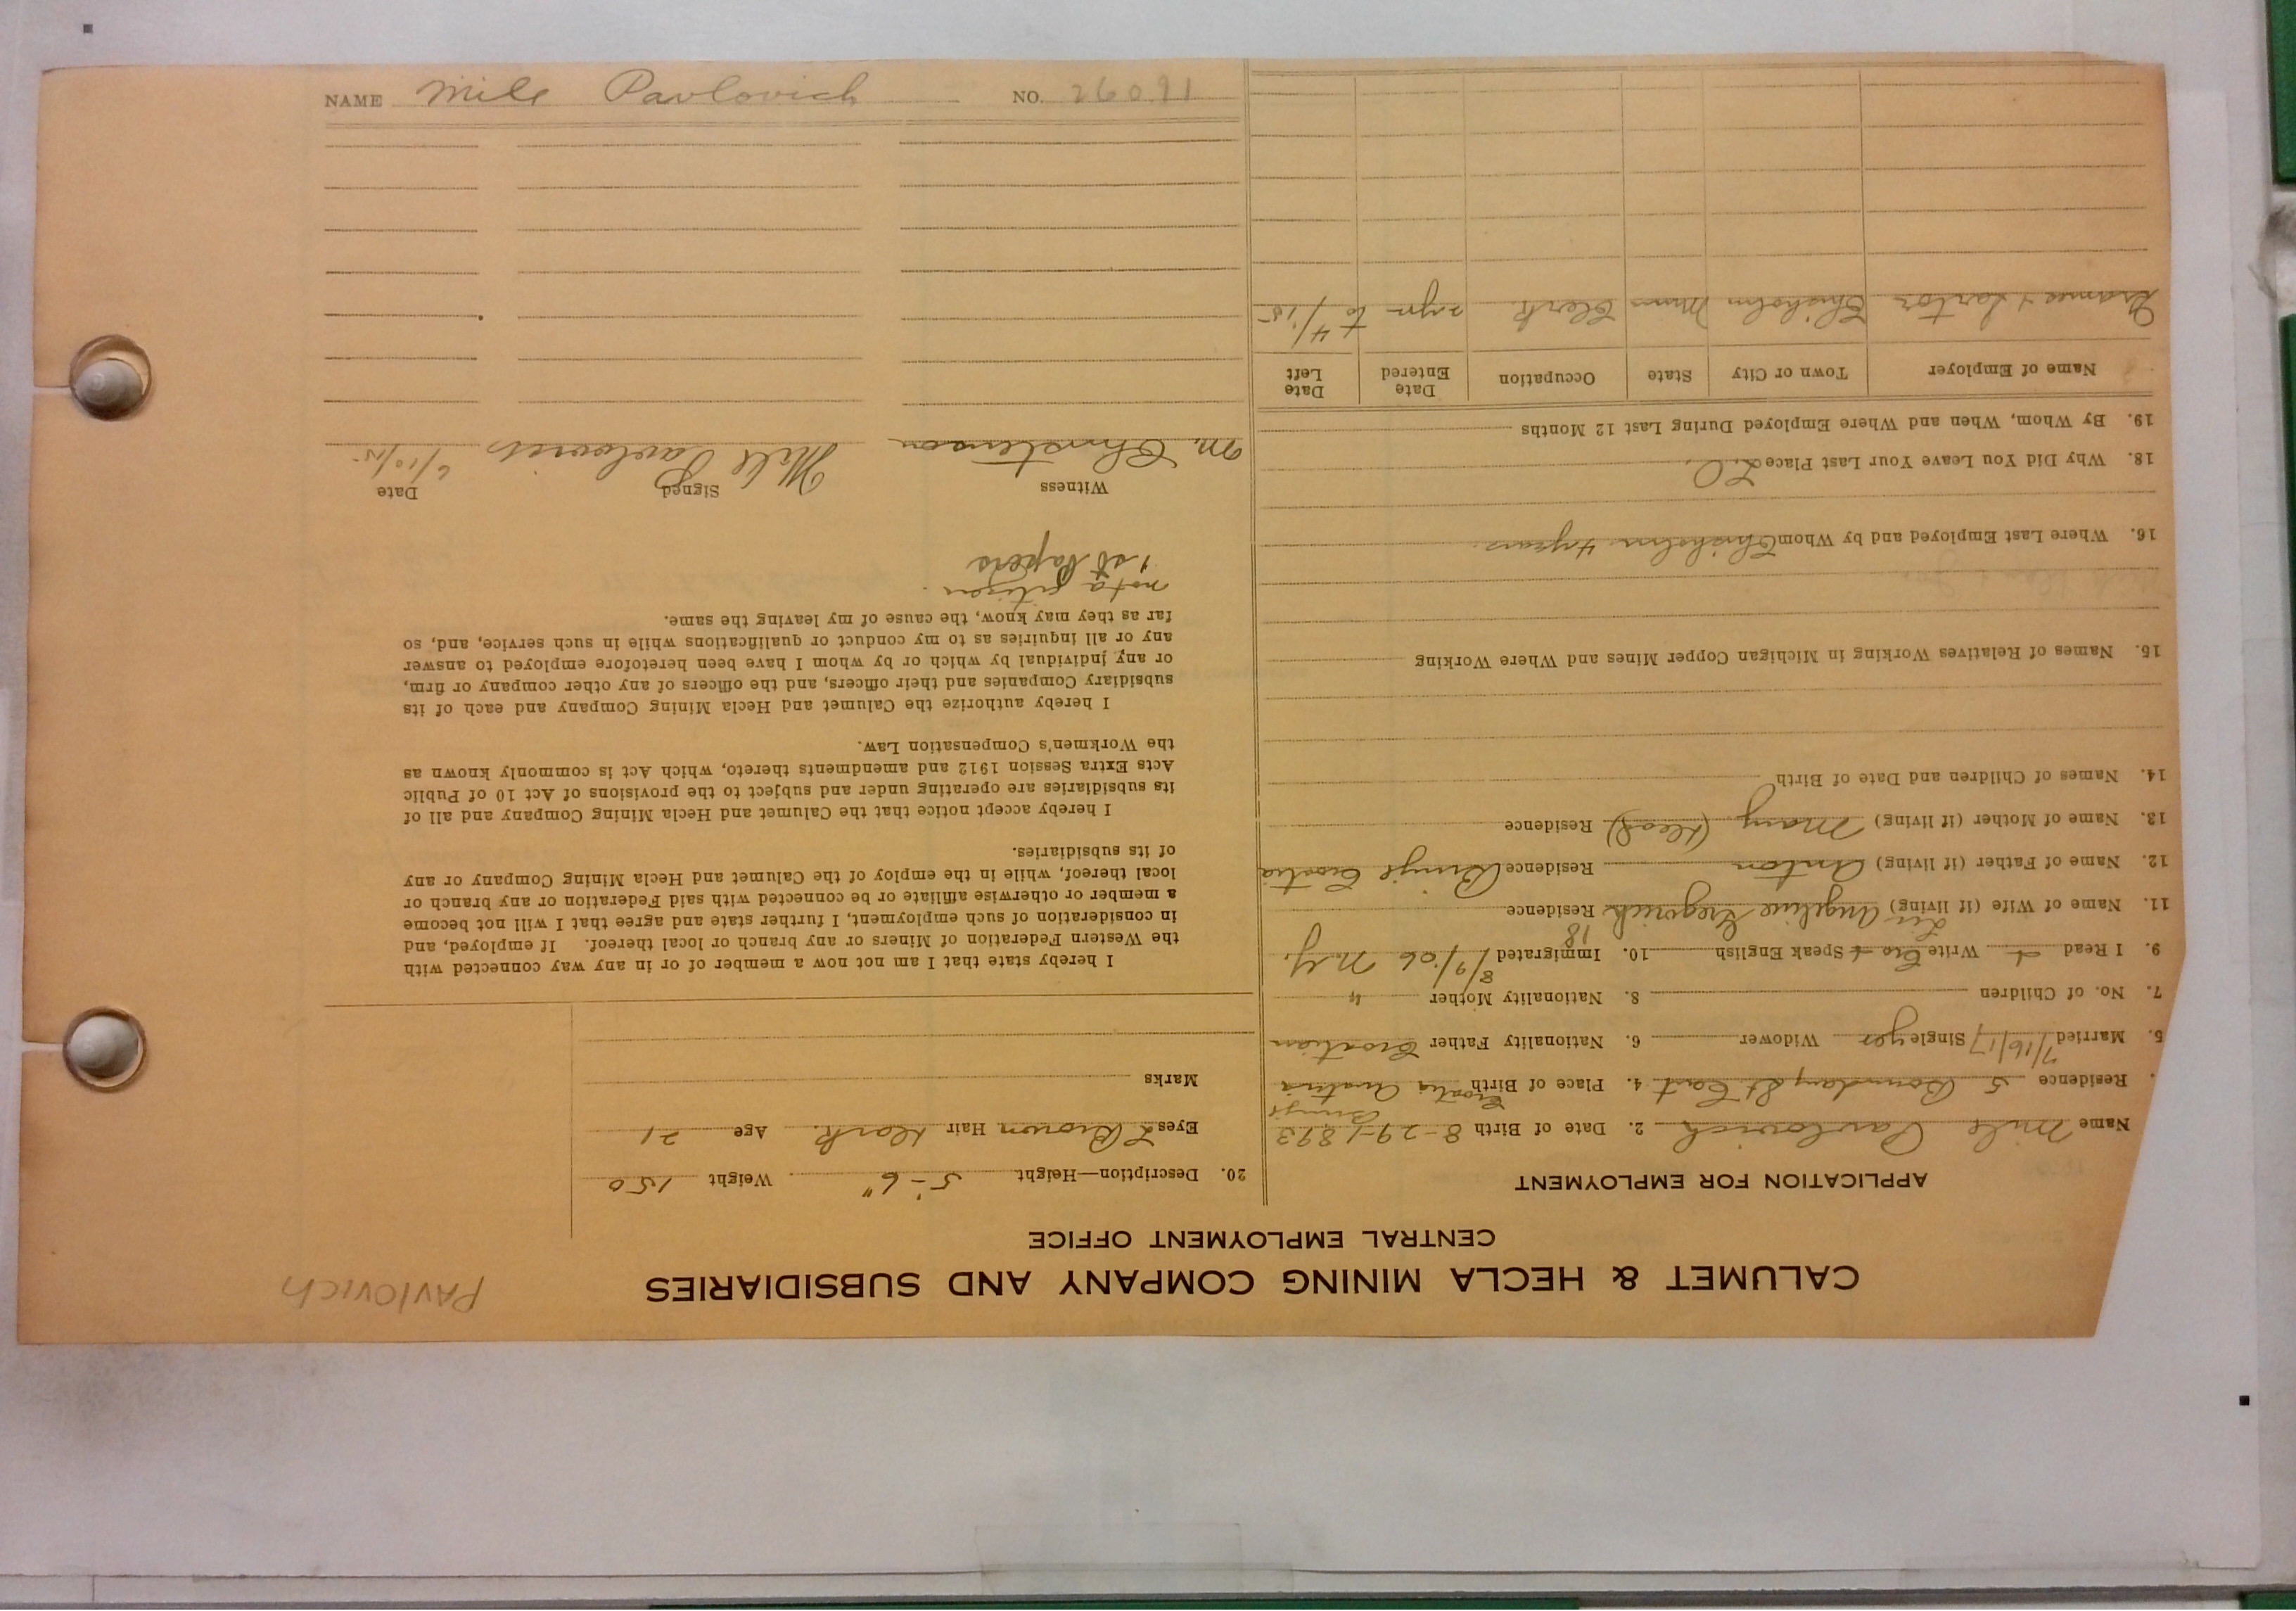 PAVLOVICH
CALUMET & HECLA MINING COMPANY AND SUBSIDIARIES
CENTRAL EMPLOYMENT OFFICE
APPLICATION FOR EMPLOYMENT
Name Mile Pavlovich 2. Date of Birth 8-29-1893
Residence 5 Boundary St East 4. Place of Birth Croatia Austria
5. Married 7/16/17 Single yes Widower 6. Nationality Father Croatian
7. No. of Children 8. Nationality Mother "
9. I Read + Write Cro + Speak English 10. Immigrated 8/9/06 N.Y.
18
11. Name of Wife (if living) Angeline Gregorich Residence
12. Name of Father (if living) Anton Residence Croatia
13. Name of Mother (if living) Mary (Dead) Residence
14. Names of Children and Date of Birth
15. Names of Relatives Working in Michigan Copper Mines and Where Working
16. Where Last Employed and by Whom Chisholm 4 years.
18. Why Did You Leave Your Last Place
19. By Whom, When and Where Employed During Last 12 Months
Name of Employer Town or City State Occupation Date Entered Date Left
Chisholm Minn Clerk 2 yr to 4/15
20. Description—Height 5'-6" Weight 150
Eyes L Brown Hair Dark Age 21
Marks
I hereby state that I am not now a member of or in any way connected with
the Western Federation of Miners or any branch or local thereof. If employed, and
in consideration of such employment, I further state and agree that I will not become
a member or otherwise affiliate or be connected with said Federation or any branch or
local thereof, while in the employ of the Calumet and Hecla Mining Company or any
of its subsidiaries.
I hereby accept notice that the Calumet and Hecla Mining Company and all of
its subsidiaries are operating under and subject to the provisions of Act 10 of Public
Acts Extra Session 1912 and amendments thereto, which Act is commonly known as
the Workmen's Compensation Law.
I hereby authorize the Calumet and Hecla Mining Company and each of its
subsidiary Companies and their officers, and the officers of any other company or firm,
or any individual by which or by whom I have been heretofore employed to answer
any or all inquiries as to my conduct or qualifications while in such service, and, so
far as they may know, the cause of my leaving the same.
not a citizen.
1st papers
Witness Signed Date
M. Christenson Mile Pavlovich 6/10/15
NAME Mile Pavlovich NO. 26091